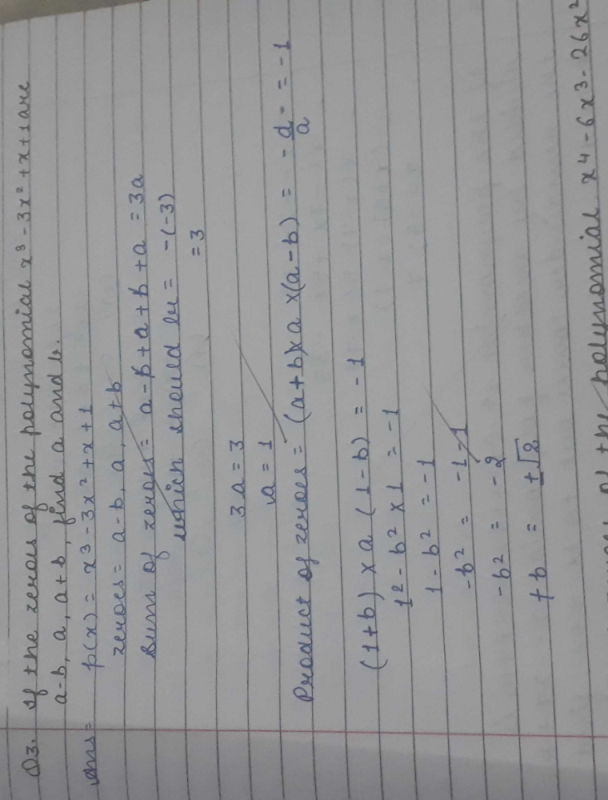 Q3. If the zeroes of the polynomial x³ - 3x² + x + 1 are
a-b, a, a+b, find a and b.
Ans = p(x) = x³ - 3x² + x + 1
zeroes = a-b, a, a+b
Sum of zeroes = a-b+a+b+a = 3a
which should be = -(-3)
= 3
3a = 3
a = 1
Product of zeroes = (a+b)×a×(a-b) = -d/a = -1
(1+b)×a(1-b) = -1
1² - b² × 1 = -1
1 - b² = -1
-b² = -1-1
-b² = -2
+b = ±√2
of the polynomial x⁴ - 6x³ - 26x²